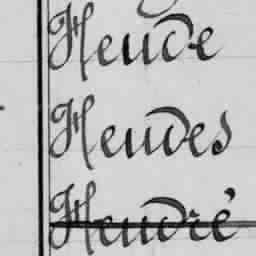 Heude
Heudes
Heudré